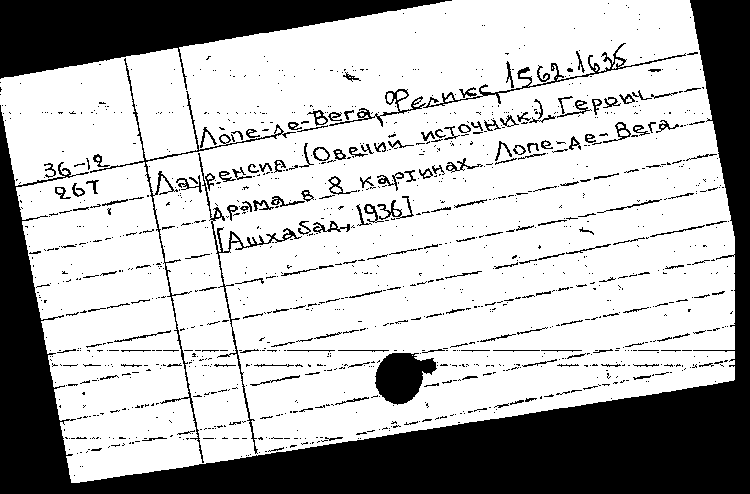 Лопе-де-Вега, Феликс, 1562-1635
36-12
267
Лауренсия. (Овечий источник). Героич.
драма в 8 картинах Лопе-де-Вега.
[Ашхабад, 1936]